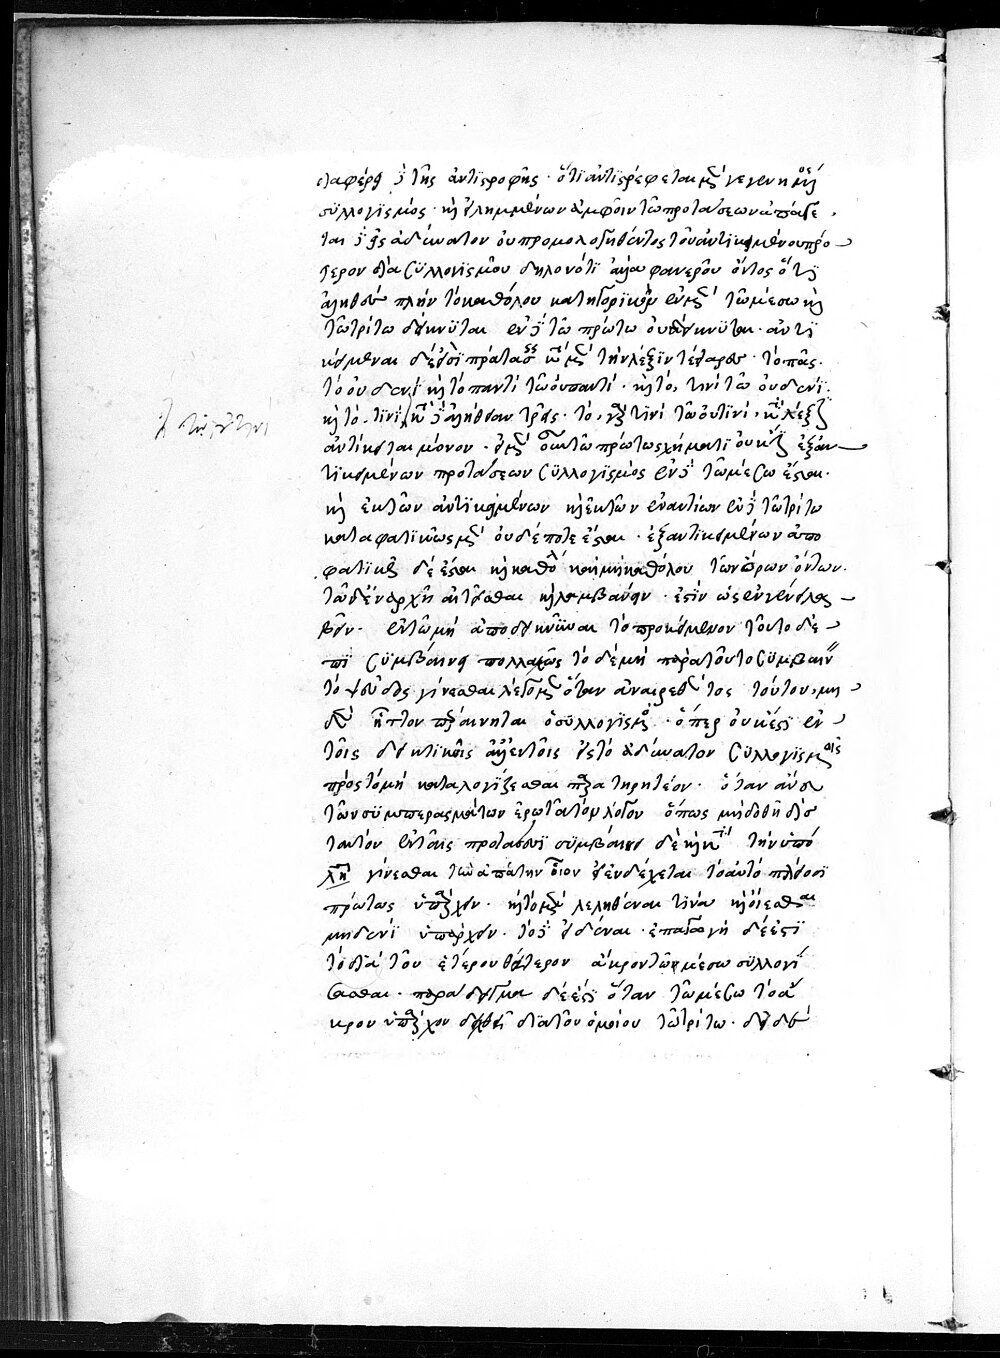 διαφέρει δὲ τῆς ἀντιστροφῆς · ὅτι ἀντιστρέφεται μὲν γεγενημένου
συλλογισμὸς · καὶ εἰλημμένων ἀμφοῖν τῶν προτάσεων ἀπάγε
ται δὲ εἰς ἀδύνατον οὐ προομολογηθέντος τοῦ ἀντικειμένου πρό
τερον διὰ συλλογισμοῦ δηλονότι ἀλλὰ φανεροῦ ὄντος ὅτι
ἀληθοῦς πλὴν τὸ καθόλου κατηγορικὸν ἐν μὲν τῷ μέσῳ καὶ
τῷ τρίτῳ δείκνυται ἐν δὲ τῷ πρώτῳ οὐ δείκνυται · ἀντι
κείμεναι δέ εἰσι προτάσεις κατὰ μὲν τὴν λέξιν τέσσαρες · τὸ παντὶ
τὸ οὐδενὶ καὶ τὸ παντὶ τῷ οὐ παντί · καὶ τὸ τινὶ τῷ οὐδενὶ
καὶ τὸ τινὶ κατὰ δὲ ἀλήθειαν τρεῖς · τὸ γὰρ τινὶ τῷ οὐ τινὶ κατὰ λέξιν
ἀντίκειται μόνον · ἐν μὲν οὖν τῷ πρώτῳ σχήματι οὐκ ἔστιν ἐξ ἀν
τικειμένων προτάσεων συλλογισμὸς ἐν δὲ τῷ μέσῳ ἔσται
καὶ ἐκ τῶν ἀντικειμένων καὶ ἐκ τῶν ἐναντίων ἐν δὲ τῷ τρίτῳ
καταφατικῶς μὲν οὐδέποτε ἔσται · ἐξ ἀντικειμένων ἀπο
φατικῶς δὲ ἔσται καὶ καθόλου καὶ μὴ καθόλου τῶν ὅρων ὄντων
τὸ δ' ἐν ἀρχῇ αἰτεῖσθαι καὶ λαμβάνειν · ἐστὶν ὡς ἐν γένει λα
βεῖν · ἐν τῷ μὴ ἀποδεικνύναι τὸ προκείμενον τοῦτο δὲ
συμβαίνει πολλαχῶς τὸ δὲ μὴ παρὰ τοῦτο συμβαίνειν
τὸ ψεῦδος γίνεσθαι λέγομεν ὅταν ἀναιρεθέντος τούτου μη
δὲν ἧττον περαίνηται ὁ συλλογισμὸς · ὅπερ οὐκ ἔστι ἐν
τοῖς δεικτικοῖς ἀλλ' ἐν τοῖς εἰς τὸ ἀδύνατον συλλογισμοῖς
πρὸς τὸ μὴ καταλογίζεσθαι παρατηρητέον · ὅταν ἄνευ
τῶν συμπερασμάτων ἐρωτᾷ τὸν λόγον ὅπως μὴ δοθῇ δὶς
ταυτὸν ἐν ταῖς προτάσεσι συμβαίνει δὲ καὶ κατὰ τὴν ὑπό
ληψιν γίνεσθαι τὴν ἀπάτην οἷον εἰ ἐνδέχεται τὸ αὐτὸ πλείοσι
πρώτως ὑπάρχειν · καὶ τὸ μὲν λεληθέναι τινὰ καὶ οἴεσθαι
μηδενὶ ὑπάρχειν · τὸ δὲ εἰδέναι · ἐπαγωγὴ δέ ἐστι
τὸ διὰ τοῦ ἑτέρου θάτερον ἄκρον τῷ μέσῳ συλλογί
σασθαι · παράδειγμα δέ ἐστι ὅταν τῷ μέσῳ τὸ ἄ
κρον ὑπάρχον δειχθῇ διὰ τοῦ ὁμοίου τῷ τρίτῳ ·